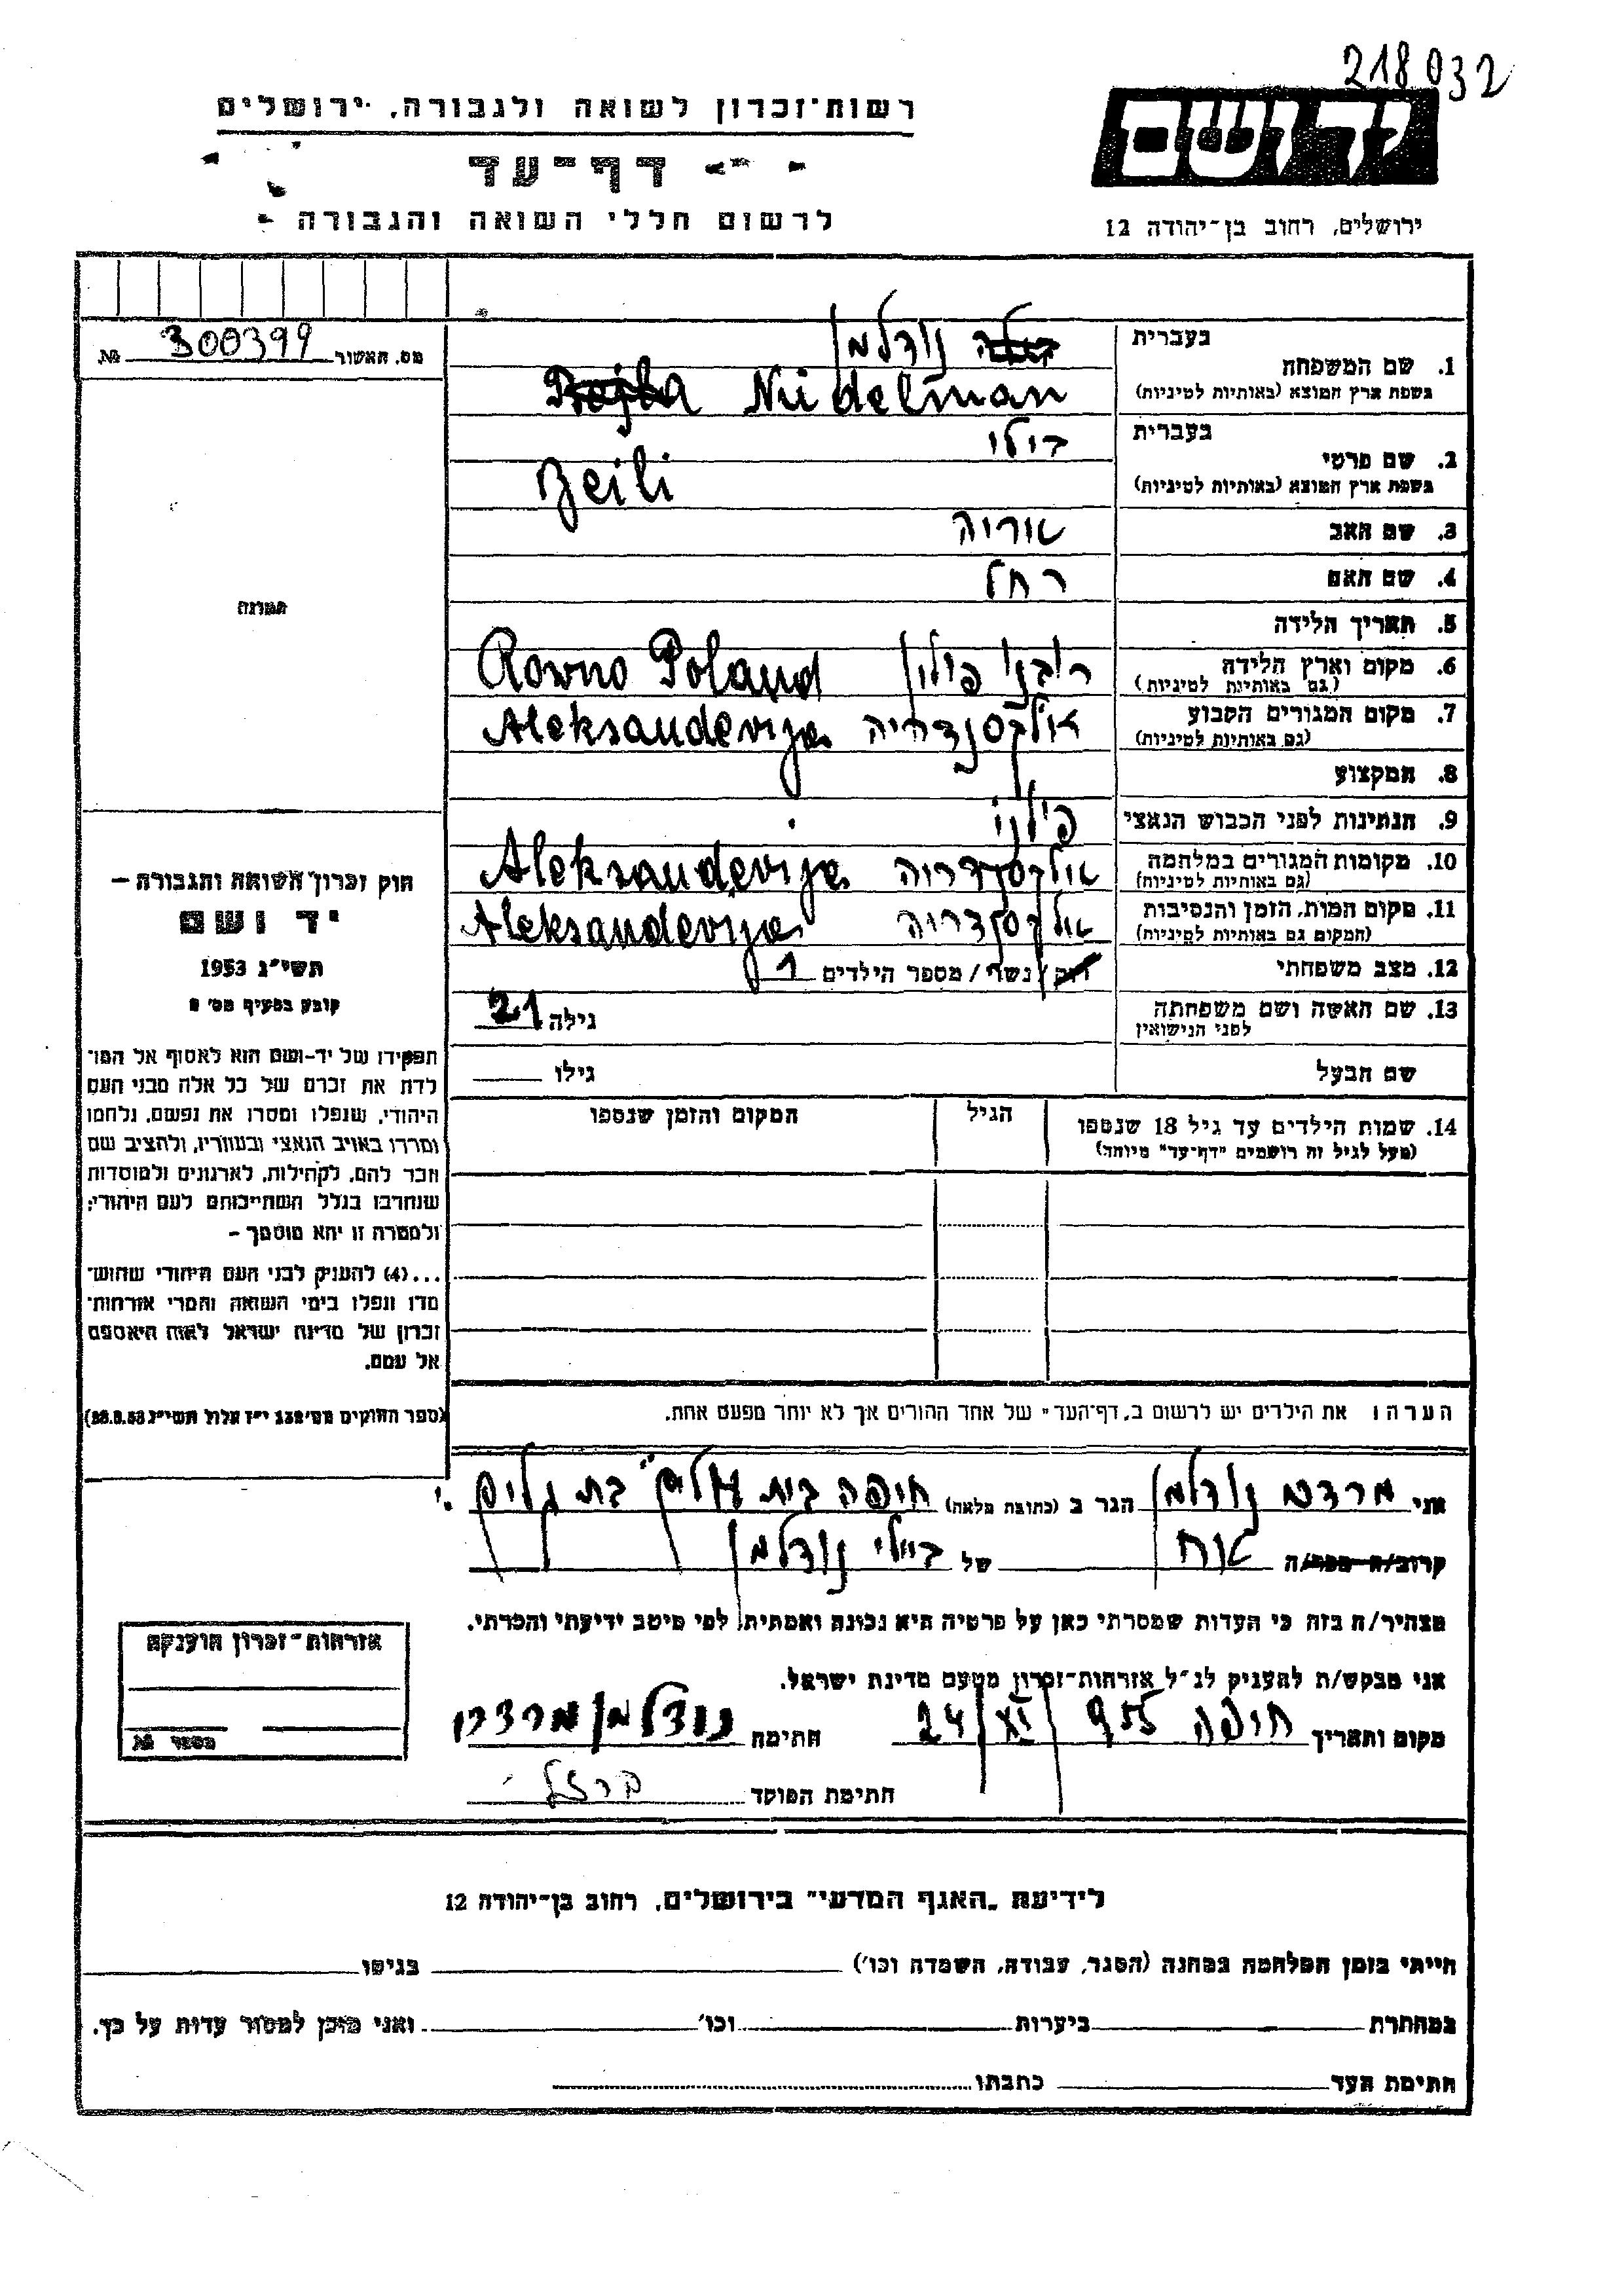 218032
רשות־זכרון לשואה ולגבורה, ירושלים
יד ושם
דף־עד
לרשום חללי השואה והגבורה
ירושלים, רחוב בן־יהודה 12
מס. האשור 300399 №
בעברית נודלמן
1. שם המשפחה
בשפת ארץ המוצא (באותיות לטיניות) Nudelman
בעברית בילי
2. שם פרטי
בשפת ארץ המוצא (באותיות לטיניות) Beili
3. שם האב אוריה
4. שם האם רחל
5. תאריך הלידה
6. מקום וארץ הלידה רובנו פולין Rowno Poland
(גם באותיות לטיניות)
7. מקום המגורים הקבוע אלקסנדריה Aleksanderija
(גם באותיות לטיניות)
8. המקצוע
9. הנתינות לפני הכבוש הנאצי פולני
10. מקומות המגורים במלחמה אלקסנדרוה Aleksanderija
(גם באותיות לטיניות)
11. מקום המות, הזמן והנסיבות אלקסנדרוה Aleksanderija
(המקום גם באותיות לטיניות)
12. מצב משפחתי רוק / נשוי / מספר הילדים 1
13. שם האשה ושם משפחתה גילה 21
לפני הנישואין
שם הבעל גילו
14. שמות הילדים עד גיל 18 שנספו הגיל המקום והזמן שנספו
(מעל לגיל זה רושמים "דף־עד" מיוחד)
תמונה
חוק זכרון השואה והגבורה –
יד ושם
תשי"ג 1953
קובע בסעיף מס' 2
תפקידו של יד-ושם הוא לאסוף אל המו־
לדת את זכרם של כל אלה מבני העם
היהודי, שנפלו ומסרו את נפשם, נלחמו
ומרדו באויב הנאצי ובעוזריו, ולהציב שם
וזכר להם, לקהילות, לארגונים ולמוסדות
שנחרבו בגלל השתייכותם לעם היהודי;
ולמטרה זו יהא מוסמך –
...(4) להעניק לבני העם היהודי שהוש־
מדו ונפלו בימי השואה והמרי אזרחות־
זכרון של מדינת ישראל לאות היאספם
אל עמם.
(ספר החוקים מס' 132 י"ז אלול תשי"ג 28.8.53)
הערה: את הילדים יש לרשום ב"דף־העד" של אחד ההורים אך לא יותר מפעם אחת.
אני מרדכי נודלמן הגר ב (כתובת מלאה) חיפה בית בת גלים
קרוב/ה מכר/ה אח של ביילי נודלמן
מצהיר/ה בזה כי העדות שמסרתי כאן על פרטיה היא נכונה ואמתית, לפי מיטב ידיעתי והכרתי.
אני מבקש/ת להעניק לנ"ל אזרחות־זכרון מטעם מדינת ישראל.
מקום ותאריך חיפה 24/XI/955 חתימה נודלמן מרדכי
חתימת הפוקד ברזל
אזרחות־זכרון הוענקה
מספר №
לידיעת "האגף המדעי" בירושלים, רחוב בן־יהודה 12
הייתי בזמן המלחמה במחנה (הסגר, עבודה, השמדה וכו') בגיטו
במחתרת ביערות וכו' ואני מוכן למסור עדות על כך.
חתימת העד כתבתו